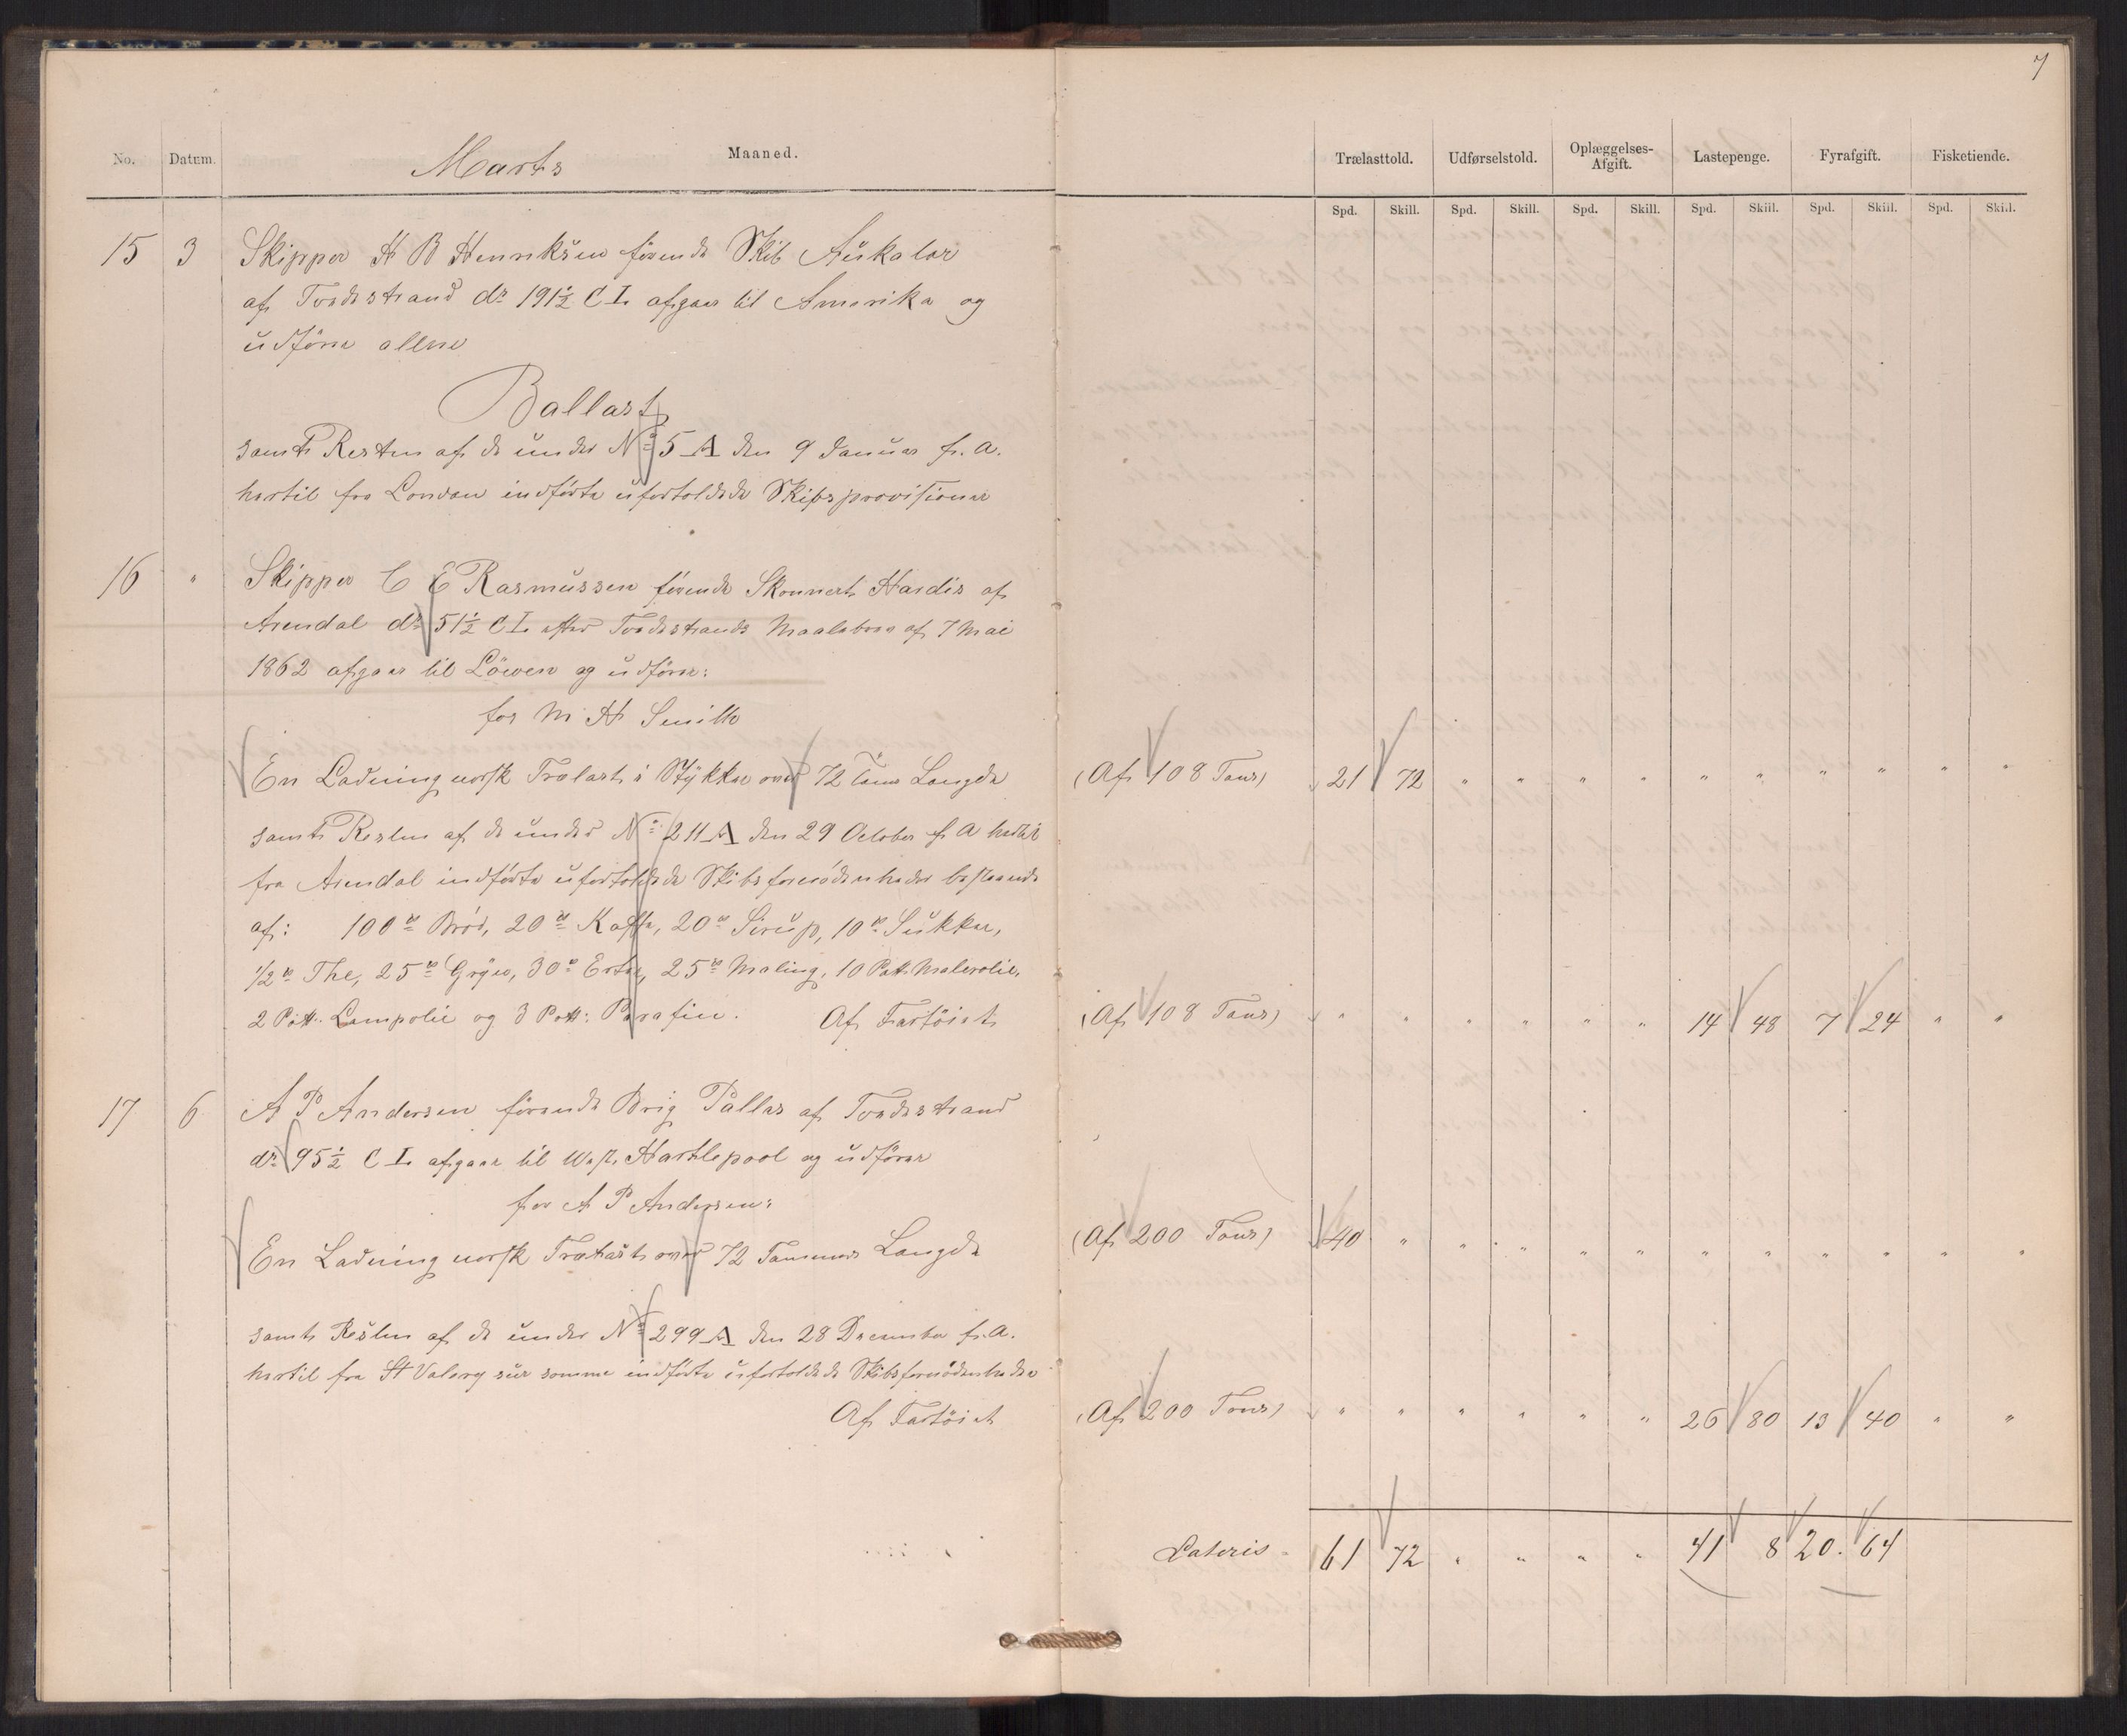 7
No. Datum. Marts Maaned. Trælasttold. Udførselstold. Oplæggelses-Afgift. Lastepenge. Fyrafgift. Fisketiende.
Spd. Skill. Spd. Skill. Spd. Skill. Spd. Skill. Spd. Skill. Spd. Skill.
15 3 Skipper H B Henriksen förende Skib
af Tvedestrand dr 191½ C L afgaar til Amerika og
udfører allene
Ballast
samt Resten af de under No 5 A den 9 Januar f. A.
hertil fra London indførte ufortoldede Skibsprovisioner
16 " Skipper C E Rasmussen förende Skonnert Hardis af
Arendal dr 51½ C L efter Tvedestrands Maalebrev af 7 Mai
1862 afgaar til Löwen og udfører:
for M H Smith
En Ladning norsk Trælast i Stykker over 72 Toms Længde (Af 108 Tons) 21 72 " " " " " " " " " "
samt Resten af de under No 211 A den 29 October f A hertil
fra Arendal indførte ufortoldede Skibsfornödenheder bestaaende
af: 100 ℔ Bröd, 20 ℔ Kaffe, 20 ℔ Sirup, 10 ℔ Sukker,
1/2 ℔ The, 25 ℔ Gryn, 30 ℔ Erter, 25 ℔ Maling, 10 Pott. Malerolie,
2 Pott. Lampolie og 3 Pott: Parafin. Af Fartöiet (Af 108 Tons) " " " " " " 14 48 7 24 " "
17 6 A P Andersen förende Brig Pallas af Tvedestrand
dr 95½ C L afgaar til West Hartlepool og udfører
for A P Andersen:
En Ladning norsk Trælast over 72 Tommers Længde (Af 200 Tons) 40 " " " " " " " " " " "
samt Resten af de under No 299 A den 28 December f. A.
hertil fra St Valery sur somme indførte ufortoldede Skibsfornödenheder
Af Fartöiet (Af 200 Tons) " " " " " " 26 80 13 40 " "
Lateris 61 72 " " " " 41 8 20. 64